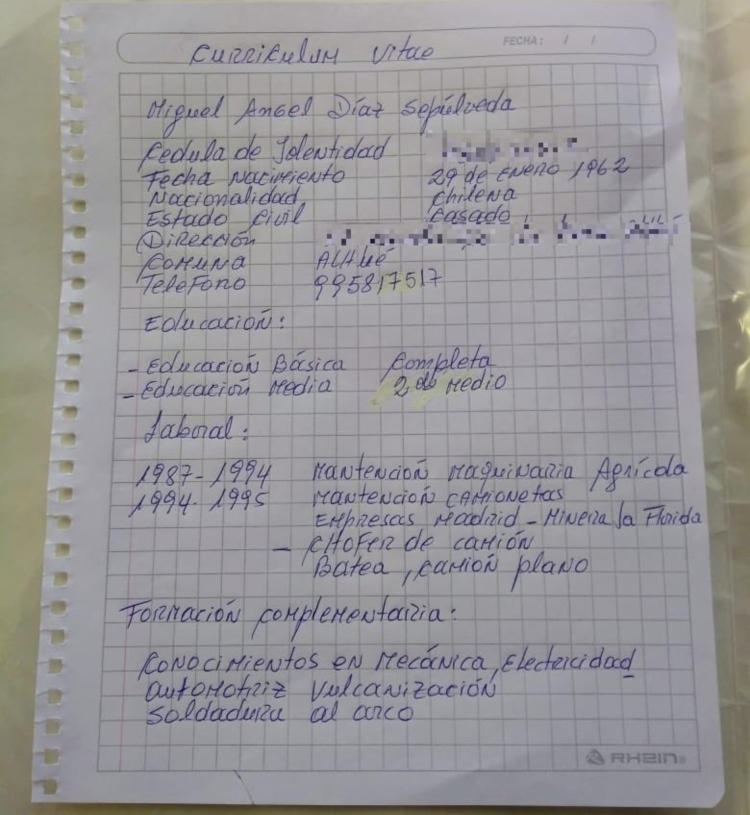 FECHA: / /
Curriculum Vitae
Miguel Angel Díaz Sepúlveda
Cedula de Identidad
Fecha Nacimiento 29 de Enero 1962
Nacionalidad Chilena
Estado Civil Casado
Dirección
Comuna Alhué
Telefono 995817517
Educación:
- Educación Básica Completa
- Educación Media 2do Medio
Laboral:
1987-1994 Mantención Maquinaria Agrícola
1994-1995 Mantención camionetas
Empresas Madrid - Minera la Florida
- Chofer de camión
Batea, camión plano
Formación complementaria:
Conocimientos en Mecánica, Electricidad
automotriz Vulcanización
Soldadura al arco
RHEIN